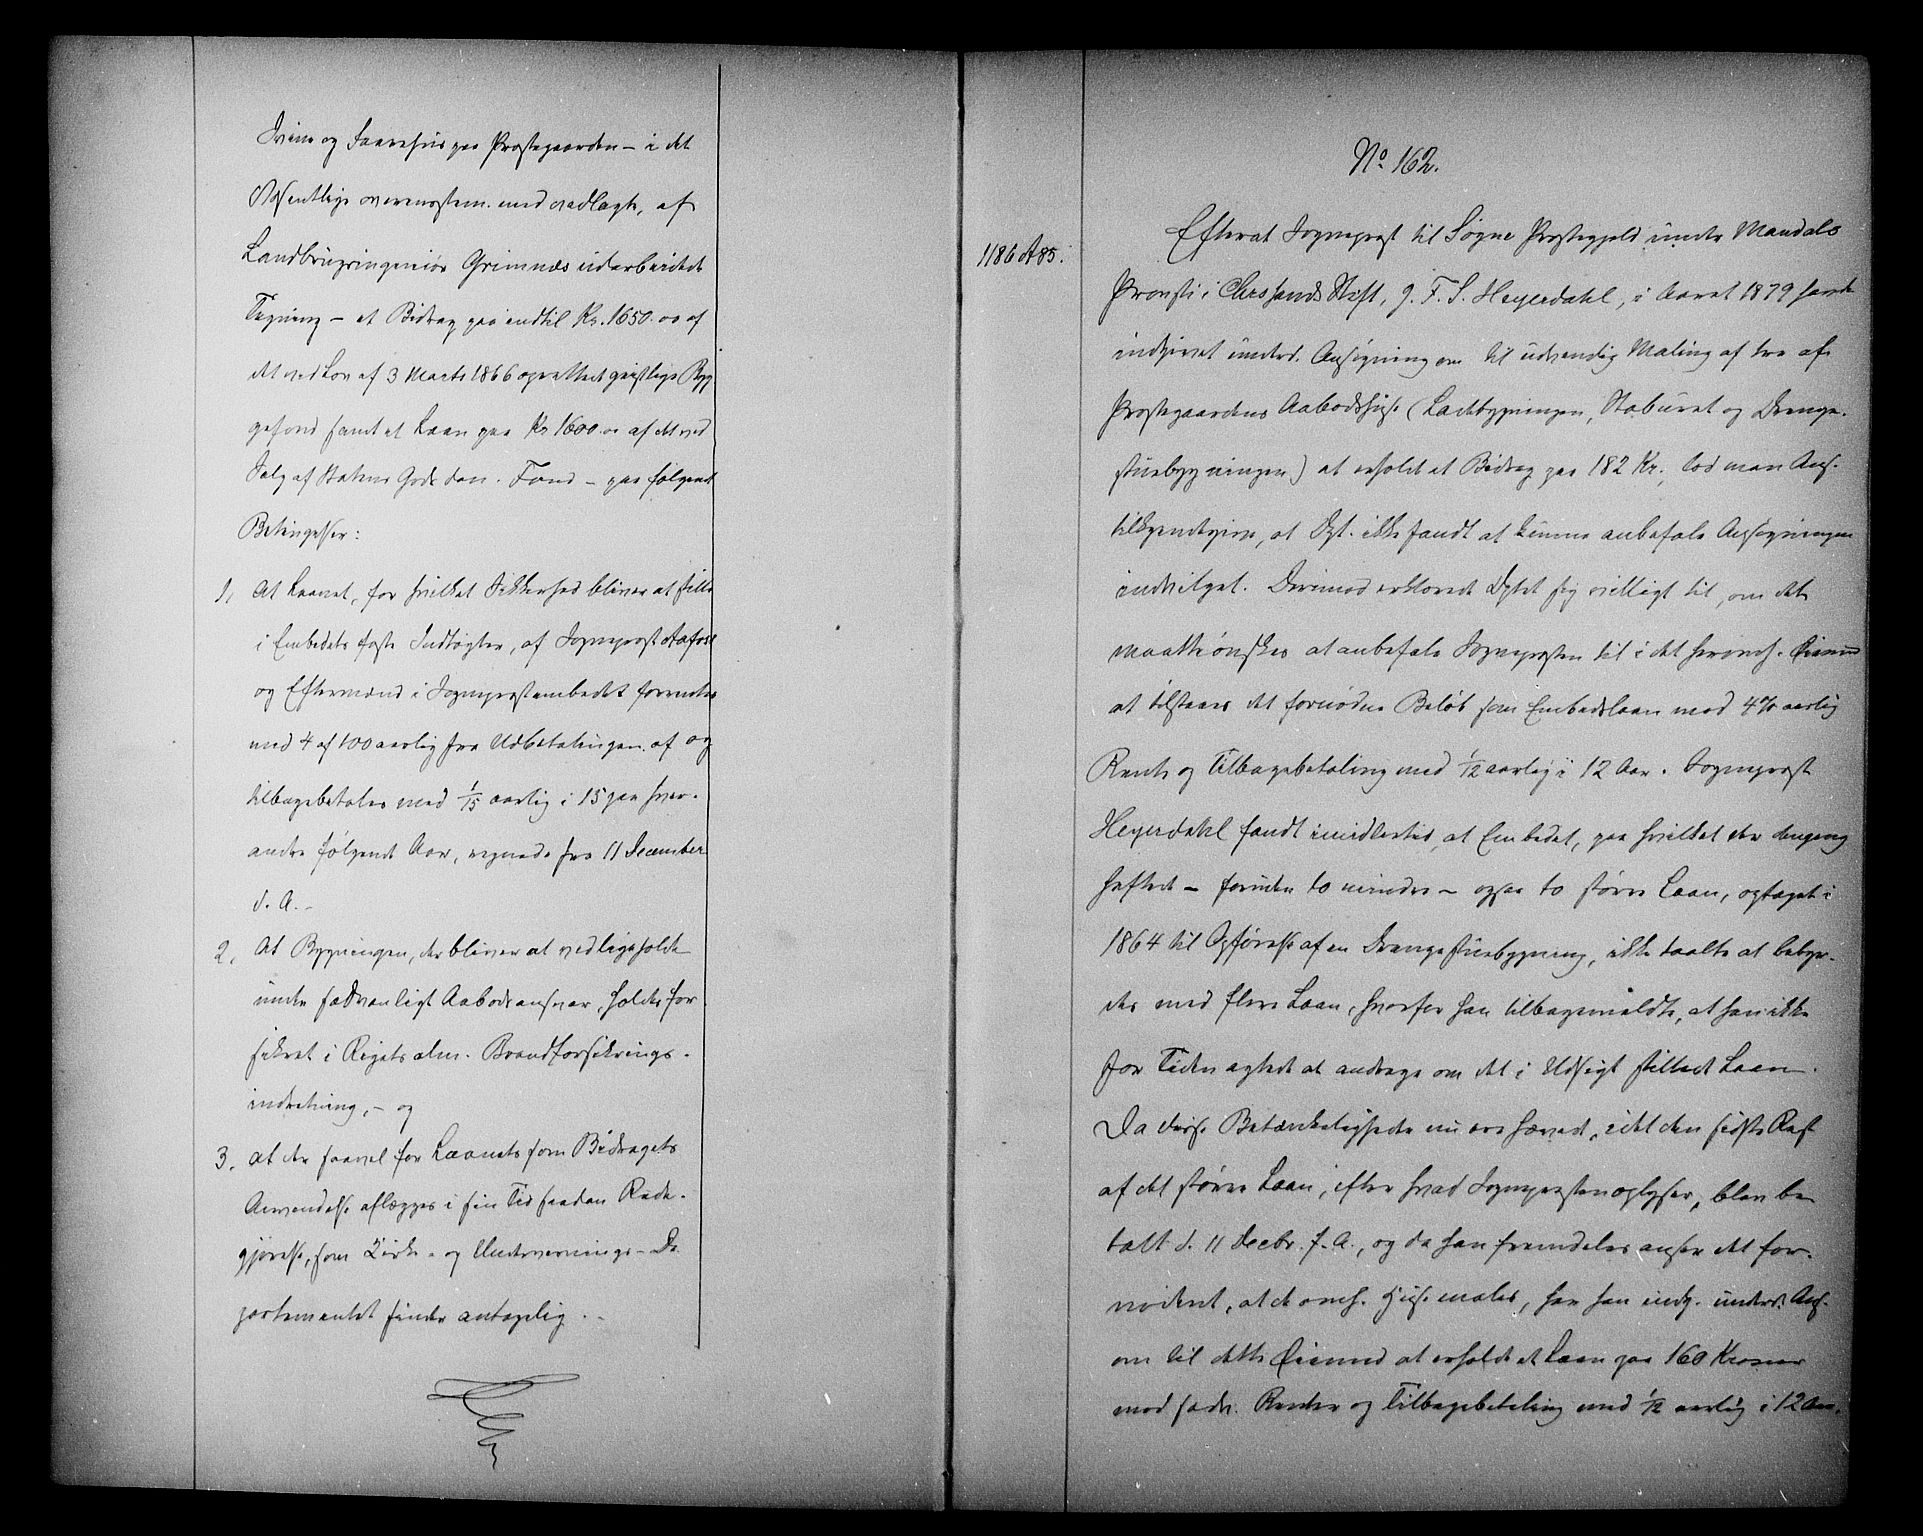 Svine og Faarehus paa Præstegaarden – i det
Væsentlige overensstem. med vedlagte, af
Landbrugsingeniør Grimnæs udarbeidede
Tegning – et Bidrag paa indtil Kr. 1650.00 af
det ved Lov af 3 Marts 1866 oprettede geistlige Byg
gefond samt et Laan paa Kr 1600.00 af det ved
Salg af Statens Gods dan. Fond – paa følgende
Betingelser:
1, At Laanet, for hvilket Sikkerhed bliver at stille
i Embedets faste Indtægter, af Sognepræst
og Eftermænd i Sognepræstembedet forrentes
med 4 af 100 aarlig fra Udbetalingen af og
tilbagebetales med 1/15 aarlig i 15 paa hver-
andre følgende Aar, regnede fra 11 December
d. A. –
2, At Bygningen, der bliver at vedligeholde
under sædvanligt Aabodsansvar, holdes for
sikret i Rigets alm. Brandforsikrings-
indretning, – og
3, at der saavel for Laanets som Bidragets
Anvendelse aflægges i sin Tid saadan Rede-
gjørelse, som Kirke- og Undervisnings-De
partementet finder antagelig. –
1186 A 85.
No 162.
Efterat Sognepræst til Søgne Præstegjeld under Mandals
Provsti i Chrssands Stift, J. F. S. Heyerdahl, i Aaret 1879 havde
indgivet underd. Ansøgning om til udvendig Maling af tre af
Præstegaardens Aabodshuse (Ladebygningen, Staburet og Drenge-
stuebygningen) at erholde et Bidrag paa 182 Kr., lod man Ans.
tilkjendegive, at Dpt. ikke fandt at kunne anbefale Ansøgningen
indvilget. Derimod erklærede Dptet sig villigt til, om det
maatte ønskes at anbefale Sognepræsten til i det heromh. Øiemed
at tilstaaes det fornødne Beløb som Embedslaan mod 4% aarlig
Rente og Tilbagebetaling med 1/12 aarlig i 12 Aar. Sognepræst
Heyerdahl fandt imidlertid, at Embedet, paa hvilket der dengang
heftede – foruden to mindre – ogsaa to større Laan, optaget i
1864 til Opførelse af en Drengestuebygning, ikke taalte at bebyr-
des med flere Laan, hvorfor han tilbagemeldte, at han ikke
for Tiden agtede at andrage om det i Udsigt stillede Laan.
Da disse Betænkeligheder nu ere hævede, idet den sidste Rest
af det større Laan, efter hvad Sognepræsten oplyser, blev be
talt d. 11 Decbr. f. A., og da han fremdeles anser det for-
nødent, at de omh. Huse males, har han indg. underd. Ans.
om til dette Øiemed at erholde et Laan paa 160 Kroner
mod sædv. Renter og Tilbagebetaling med 1/12 aarlig i 12 Aar.